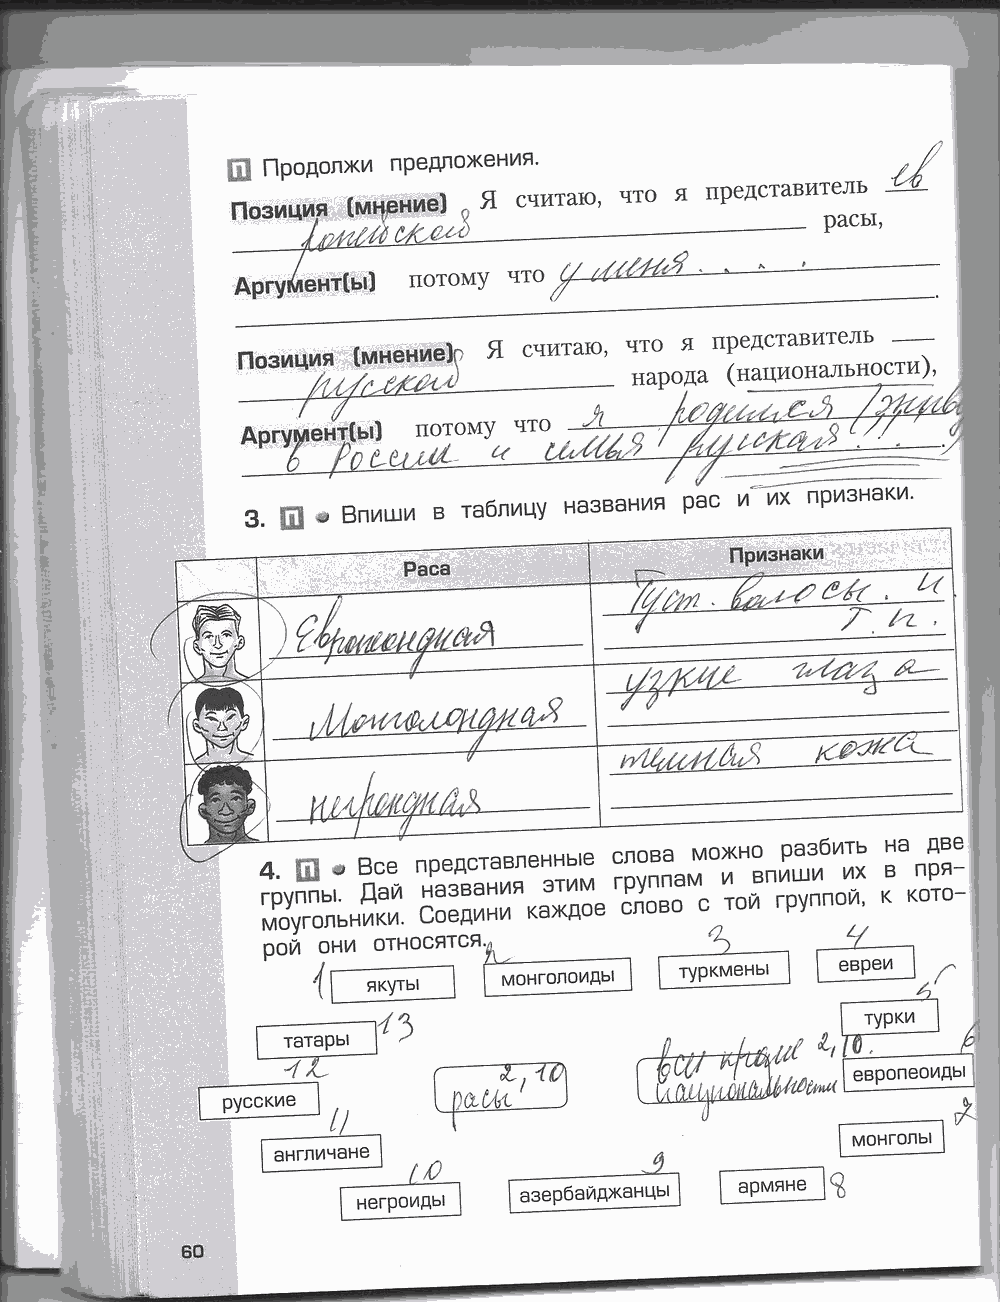 П Продолжи предложения.
Позиция (мнение) Я считаю, что я представитель ев
ропейской расы,
Аргумент(ы) потому что у меня . . . .
Позиция (мнение) Я считаю, что я представитель
русской народа (национальности),
Аргумент(ы) потому что я родился (живу)
в России и семья русская!!.
3. П • Впиши в таблицу названия рас и их признаки.
Раса Признаки
Европеоидная Густ. волосы. и
т. п.
Монголоидная узкие глаза
негроидная темная кожа
4. П • Все представленные слова можно разбить на две
группы. Дай названия этим группам и впиши их в пря-
моугольники. Соедини каждое слово с той группой, к кото-
рой они относятся.
1 якуты 2 монголоиды 3 туркмены 4 евреи
татары 13 турки 5
все кроме 2, 10.
русские 12 расы 2, 10 национальности европеоиды 6
англичане 11 монголы 7
негроиды 10 азербайджанцы 9 армяне 8
60